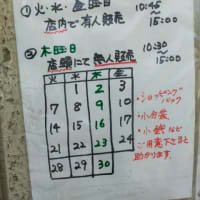 ①火・水・金曜日 10:45
店内で有人販売 ~15:00
②木曜日 10:30
店頭にて無人販売 ~15:00
火 水 木 金
1 2 3
7 8 9 10
14 15 16 17
21 22 23 24
28 29 30
・ショッピングバッグ
・小分袋
・小銭など
ご用意下さると
助かります。